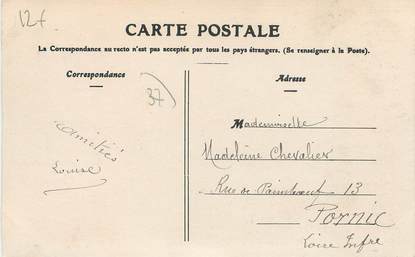 12f
CARTE POSTALE
La Correspondance au recto n'est pas acceptée par tous les pays étrangers. (Se renseigner à la Poste).
Correspondance
37
Amitiés
Louise
Adresse
Mademoiselle
Madeleine Chevalier
Rue de Paimboeuf 13
Pornic
Loire Infre